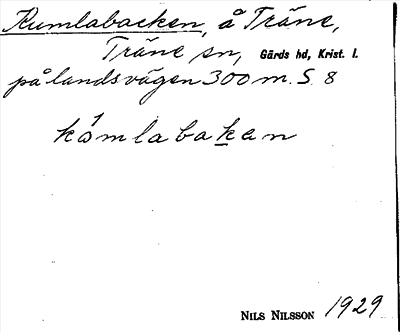 Rumlabacken, å Träne,
Träne sn, Gärds hd, Krist. l.
på landsvägen 300 m. S. 8
NILS NILSSON 1929